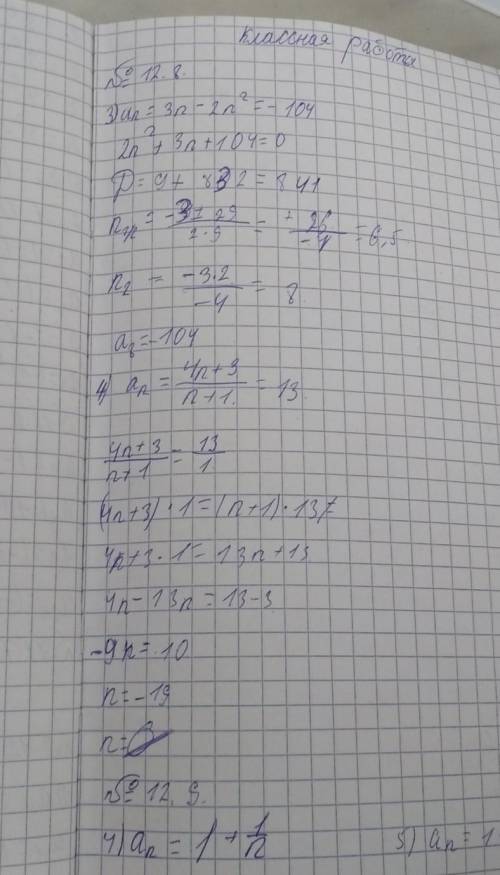 Классная работа
№ 12.8.
3) aₙ = 3n - 2n² = -104
2n² + 3n + 104 = 0
D = 9 + 832 = 841
= 6,5
n₂ = (-3·2)/(-4) = 8
a₈ = -104
4) aₙ = (4n+3)/(n+1) = 13
(4n+3)/(n+1) = 13/1
(4n+3)·1 = (n+1)·13
4n+3·1 = 13n+13
4n-13n = 13-3
-9n = 10
n = -19
n =
№ 12.9.
4) aₙ = 1 + 1/n 5) aₙ = 1